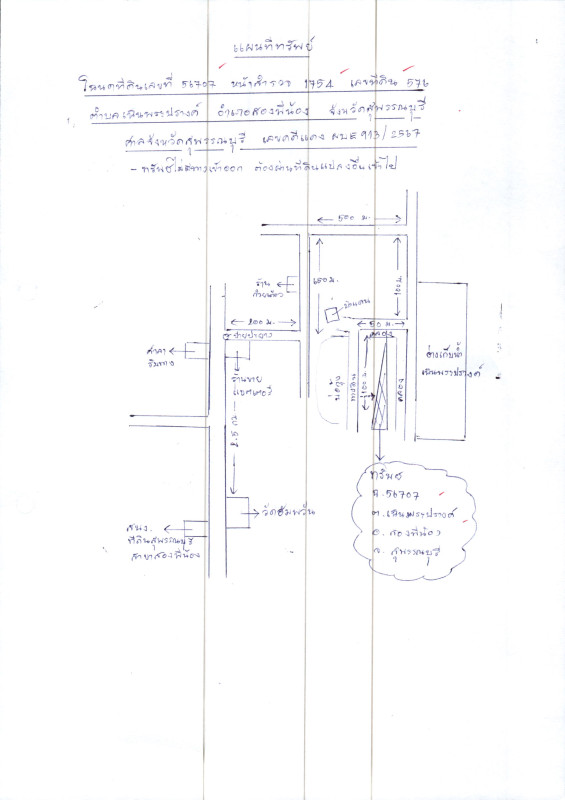 แผนที่ทรัพย์
โฉนดที่ดินเลขที่ 56707 หน้าสำรวจ 1754 เลขที่ดิน 576
ตำบลเนินพระปรางค์ อำเภอสองพี่น้อง จังหวัดสุพรรณบุรี
ศาลจังหวัดสุพรรณบุรี เลขคดีแดง ผบE 913/2567
- ทรัพย์ไม่มีทางเข้าออก ต้องผ่านที่ดินแปลงอื่นเข้าไป
500 ม.
650 ม.
100 ม.
ร้าน
ก๋วยเตี๋ยว
บ้านคน
200 ม.
50 ม.
คลอง
ศาลา
ริมทาง
ร้านขาย
แบตเตอรี่
บ่อกุ้ง
100 ม.
คลอง
อ่างเก็บน้ำ
เนินพระปรางค์
2.5 กม.
วัดอัมพวัน
สนง.
ที่ดินสุพรรณบุรี
สาขาสองพี่น้อง
ทรัพย์
ฉ.56707
ต.เนินพระปรางค์
อ. สองพี่น้อง
จ. สุพรรณบุรี